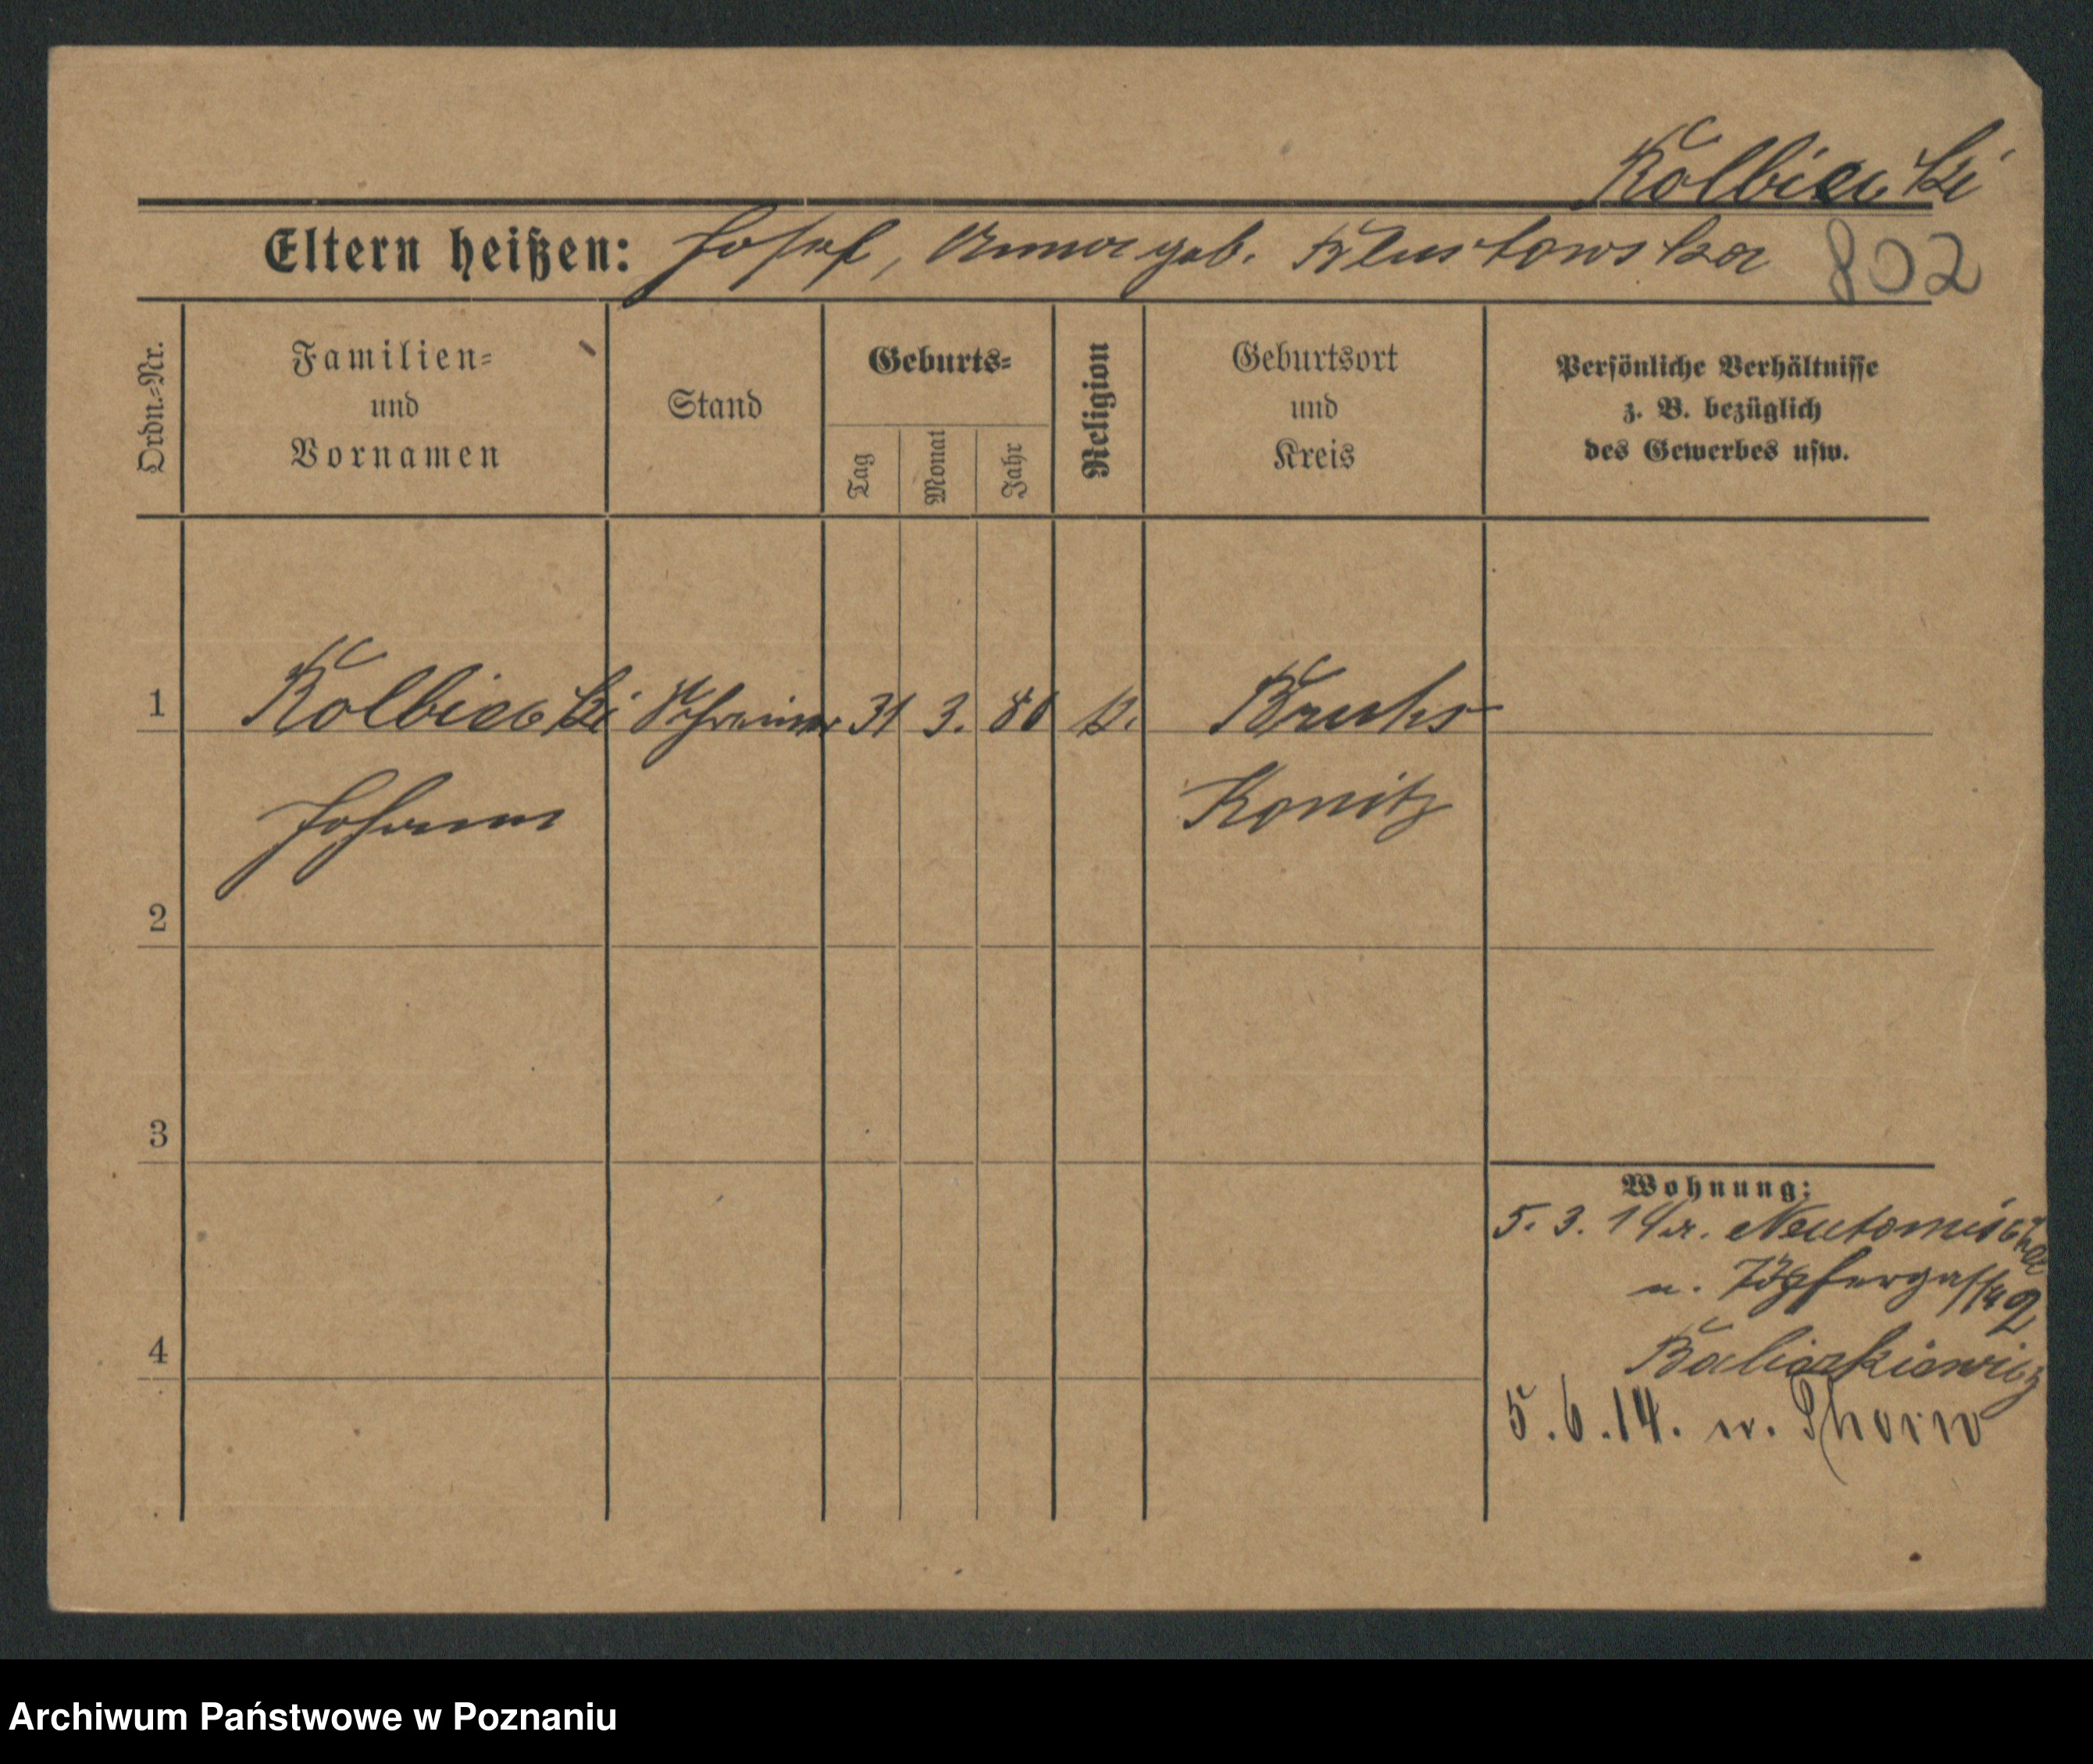 Kolbiecki
Eltern heißen: Josef, Anna geb. Klustowska 802
Ordn.-Nr.
Familien-
und
Vornamen
Stand
Geburts-
Tag
Monat
Jahr
Religion
Geburtsort
und
Kreis
Persönliche Verhältnisse
z. B. bezüglich
des Gewerbes usw.
1 Kolbiecki Schreiner 31 3. k.
Johann
Konitz
2
3
4
Wohnung:
5. 3. 14
u. Töpfergasse 2
5. 6. 14. n. Thorn
Archiwum Państwowe w Poznaniu